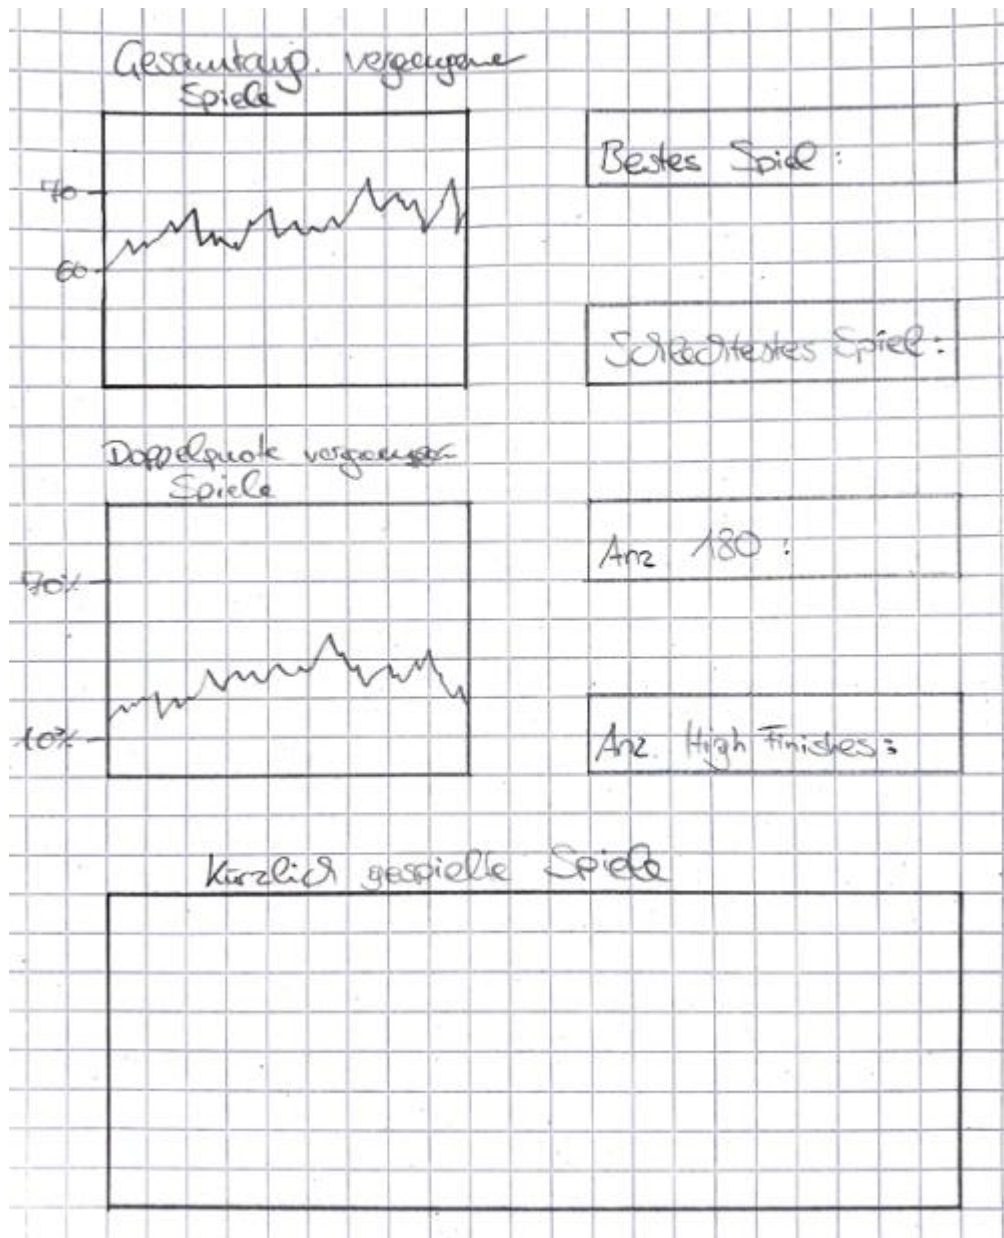 vergangene
Spiele
70
60
Bestes Spiel :
Schlechtestes Spiel :
Doppelquote
Spiele
70%
10%
Anz 180 :
Anz. High Finishes :
Kürzlich gespielte Spiele